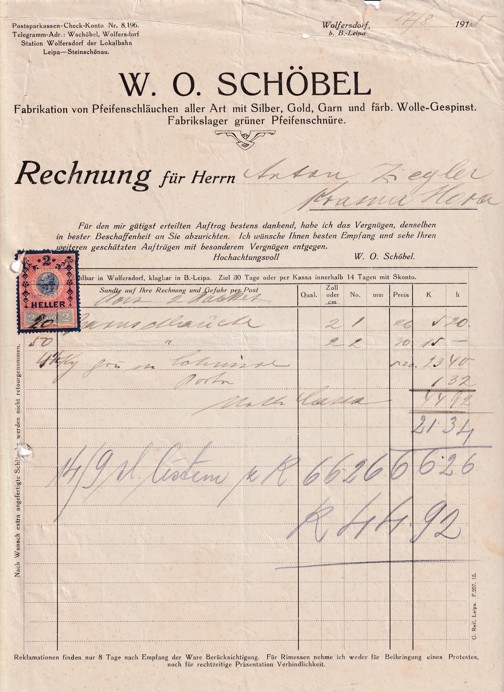 Postsparkassen-Check-Konto Nr. 8.196.
Telegramm-Adr.: Wschöbel, Wolfersdorf
Station Wolfersdorf der Lokalbahn
Leipa—Steinschönau.
Wolfersdorf,
b. B.-Leipa
191
W. O. SCHÖBEL
Fabrikation von Pfeifenschläuchen aller Art mit Silber, Gold, Garn und färb. Wolle-Gespinst.
Fabrikslager grüner Pfeifenschnüre.
Rechnung für Herrn Anton Ziegler
Für den mir gütigst erteilten Auftrag bestens dankend, habe ich das Vergnügen, denselben
in bester Beschaffenheit an Sie abzurichten. Ich wünsche Ihnen besten Empfang und sehe Ihren
weiteren geschätzten Aufträgen mit besonderem Vergnügen entgegen.
Hochachtungsvoll W. O. Schöbel.
lbar in Wolfersdorf, klagbar in B.-Leipa. Ziel 30 Tage oder per Kassa innerhalb 14 Tagen mit Skonto.
2
HELLER
2 2
Sandte auf Ihre Rechnung und Gefahr per Post
Qual. Zoll oder cm. No. mm Preis K h
20 2 1 26 5 20
50 " 2 2 30 15 —
23 40
Porto 1 32
44 92
21 34
14/9 K 66 26 66 26
K 44 92
Nach Wunsch extra angefertigte Schläuche werden nicht retourgenommen.
G. Reil, Leipa. F 207. 10.
Reklamationen finden nur 8 Tage nach Empfang der Ware Berücksichtigung. Für Rimessen nehme ich weder für Beibringung eines Protestes,
noch für rechtzeitige Präsentation Verbindlichkeit.